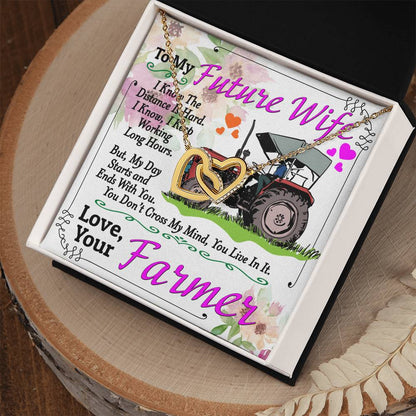 To My
Future Wife
I Know The
Distance Is Hard.
I Know, I Keep
Working
Long Hours.
But, My Day
Starts and
Ends With You.
You Don't Cross My Mind, You Live In It.
Love,
Your
Farmer